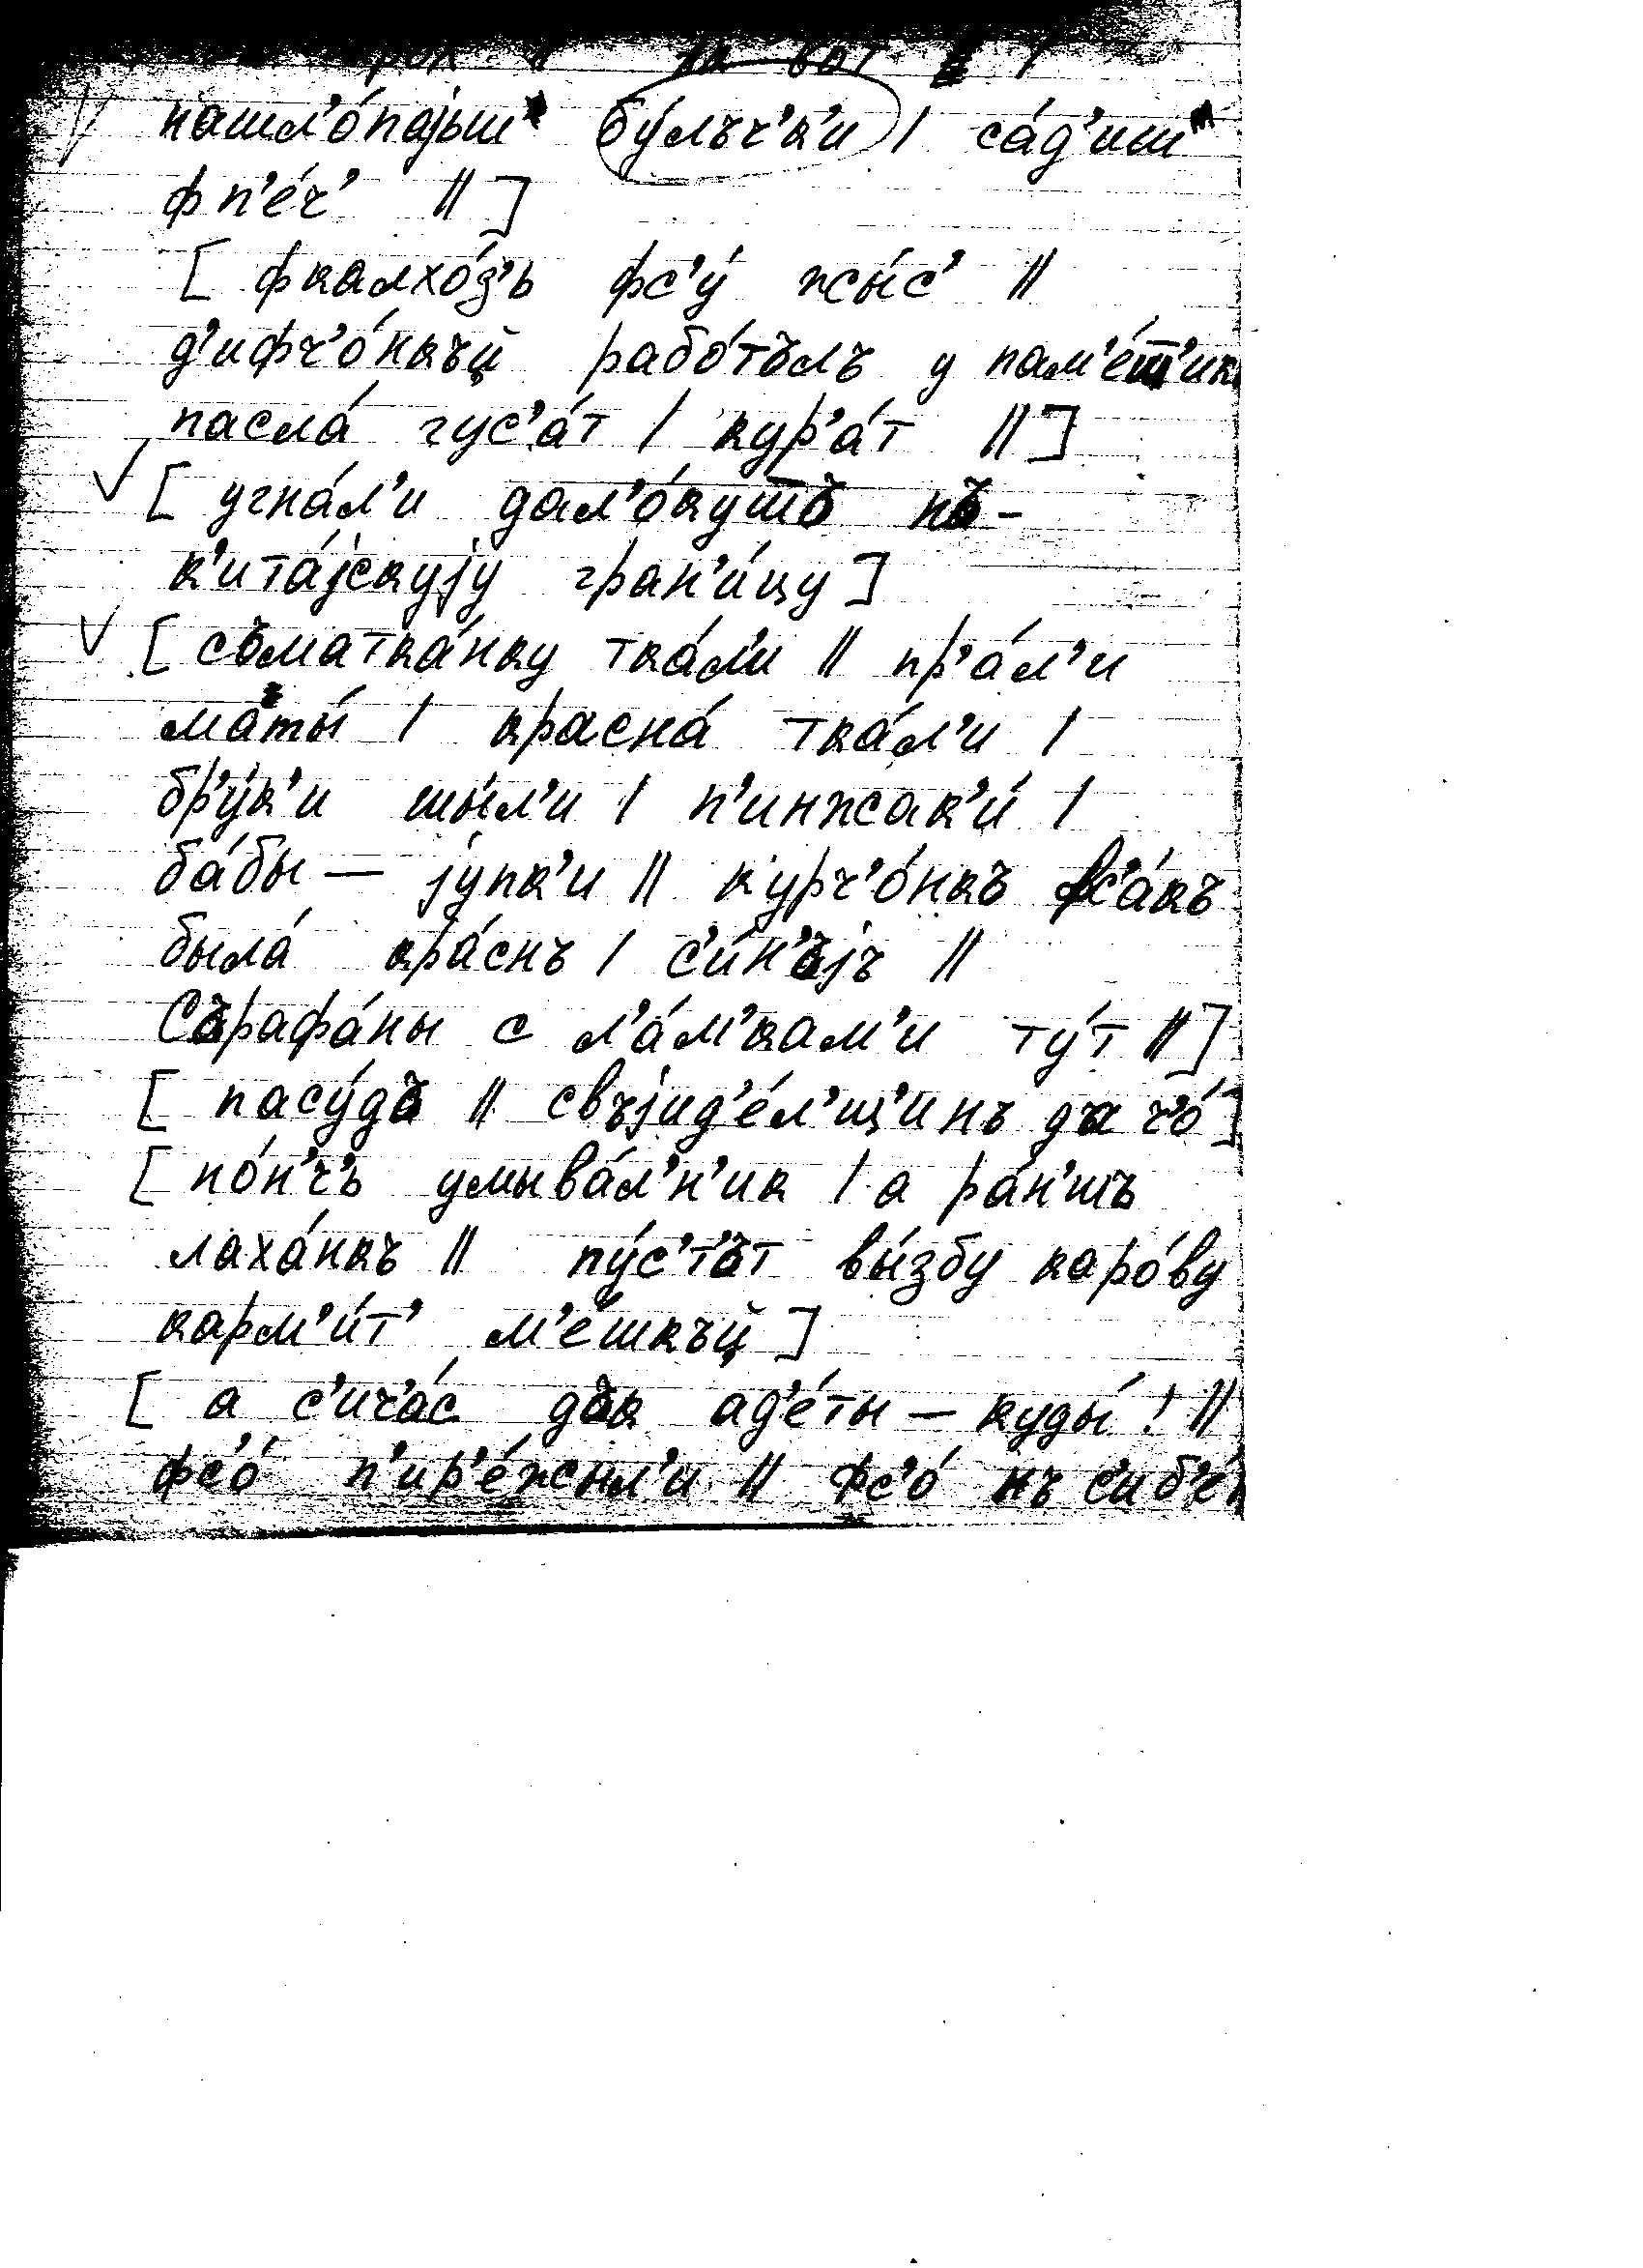 нашл'о́пајьш бу́лъч'к'и / са́д'иш
ф п'е́ч' // ]
[ фкалхо́з'ь фс'у́ жы́с' //
д'ифч'о́нкъй рабо́тълъ у пам'е́ш'ик
пасла́ гус'а́т / кур'а́т // ]
[ угна́л'и дал'о́кутъ нъ-
к'ита́јскују гран'и́цу ]
[ съматка́нку тка́л'и // пр'а́л'и
маты́ / красна́ тка́л'и /
бр'у́к'и шы́л'и / п'инжак'и́ /
ба́бы — јупк'и // курч'о́нкъ вс'а́къ
была́ кра́снъ / с'и́н'ьјъ //
Сърафа́ны с л'а́м'кам'и ту́т // ]
[ пасу́дъ // свъјид'е́л'щ'инъ да ч'о́ ]
[ но́н'ч'ь умыва́л'н'ик / а ра́н'шъ
лаха́нкъ // пу́с'т'ът вы́збу каро́ву
карм'и́т' м'е́шкъй ]
[ а с'ич'а́с дък ад'е́ты — куды́ ! //
фс'о́ п'ир'е́жнл'и // Фс'о́ нъ с'иб'е́